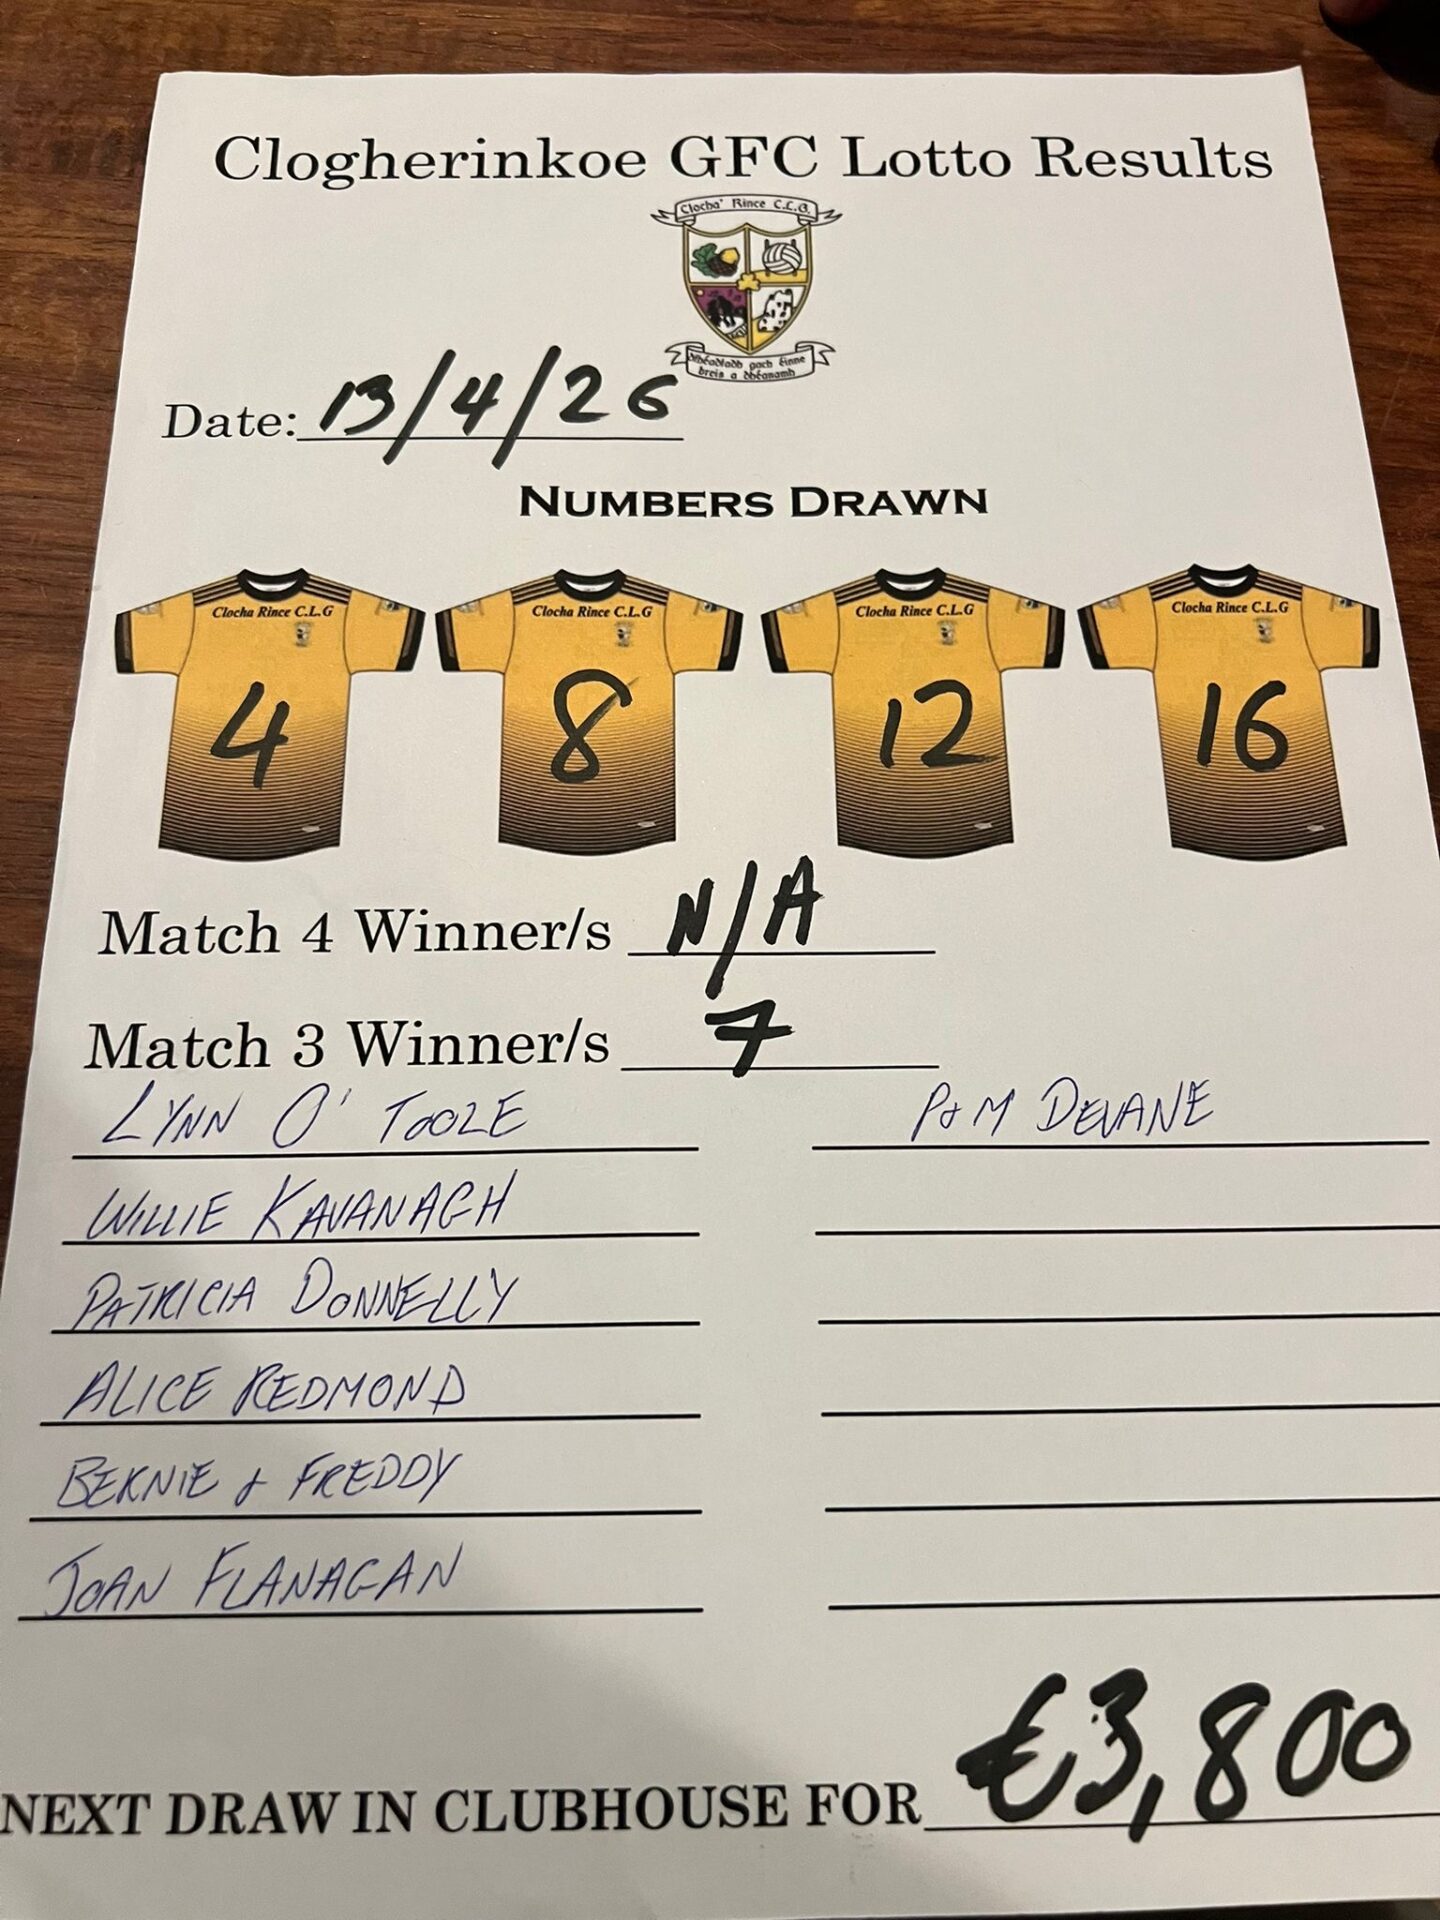 Clogherinkoe GFC Lotto Results
Clocha' Rince C.L.G.
Dhéadfadh gach éinne
breis a dhéanamh
Date: 13/4/26
NUMBERS DRAWN
Clocha Rince C.L.G Clocha Rince C.L.G Clocha Rince C.L.G Clocha Rince C.L.G
4 8 12 16
Match 4 Winner/s N/A
Match 3 Winner/s 7
LYNN O' TOOLE PAM DEVANE
WILLIE KAVANAGH
PATRICIA DONNELLY
ALICE REDMOND
BERNIE & FREDDY
JOAN FLANAGAN
NEXT DRAW IN CLUBHOUSE FOR €3,800